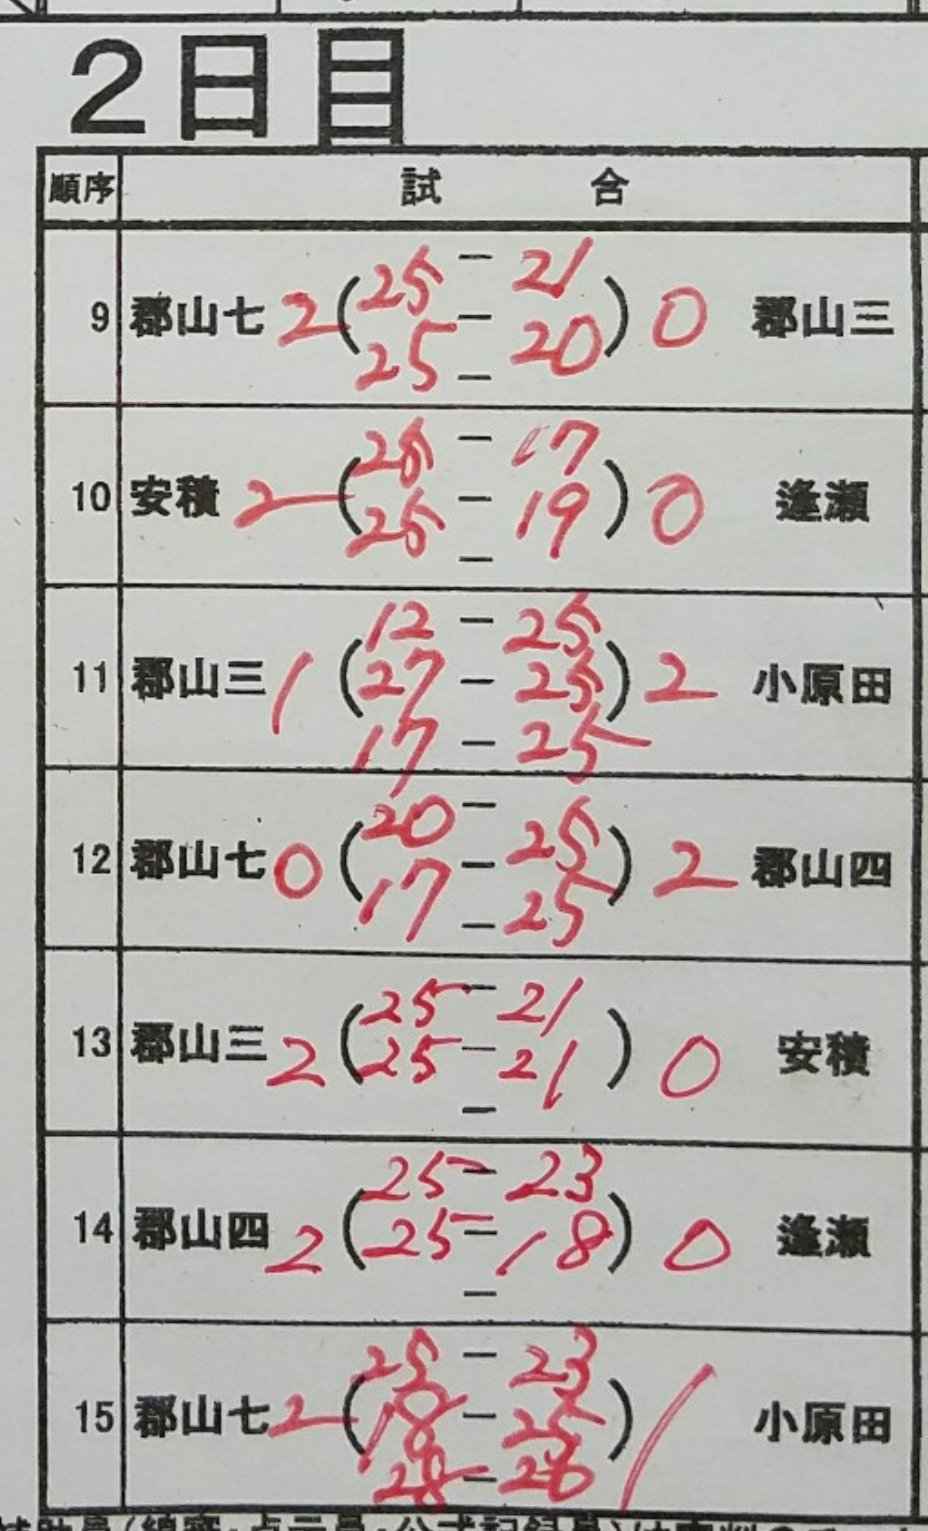 2日目
順序 試合
9 郡山七 2 ( 25 - 21 ) 0 郡山三
25 - 20
-
10 安積 2 ( 25 - 17 ) 0 逢瀬
25 - 19
-
11 郡山三 1 ( 12 - 25 ) 2 小原田
27 - 25
17 - 25
12 郡山七 0 ( 20 - 25 ) 2 郡山四
17 - 25
-
13 郡山三 2 ( 25 - 21 ) 0 安積
25 - 21
-
14 郡山四 2 ( 25 - 23 ) 0 逢瀬
25 - 18
-
15 郡山七 2 ( 25 - 23 ) 1 小原田
18 - 25
28 - 26